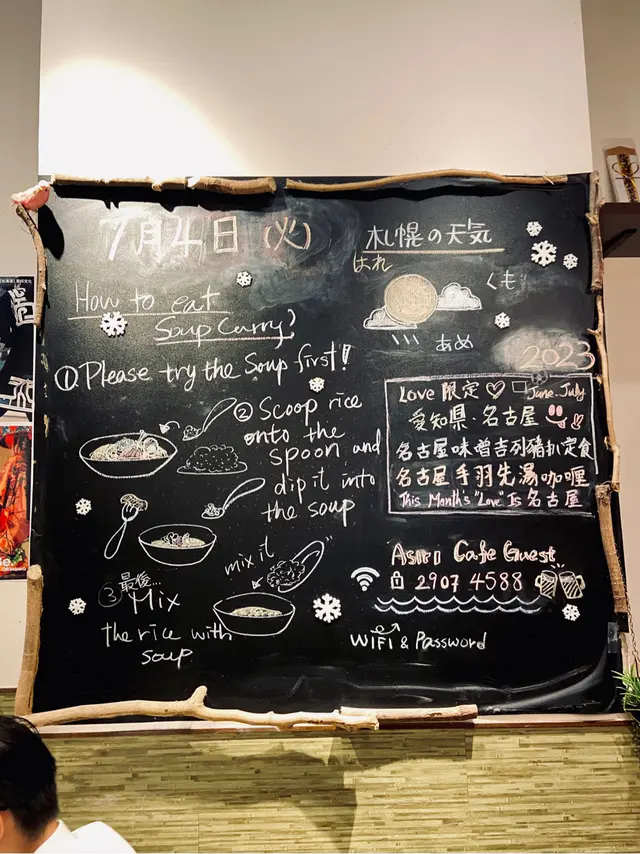 7月4日(火)
How to eat
Soup Curry?
① Please try the Soup first!
② Scoop rice
onto the
spoon and
dip it into
the soup
mix it
③ 最後...
Mix
the rice with
soup
札幌の天気
はれ
くも
あめ
2023
Love 限定 June. July
愛知県. 名古屋
名古屋味噌吉列豬扒定食
名古屋手羽先湯咖喱
This Month's "Love" Is 名古屋
Asiri Cafe Guest
2907 4588
WiFi & Password